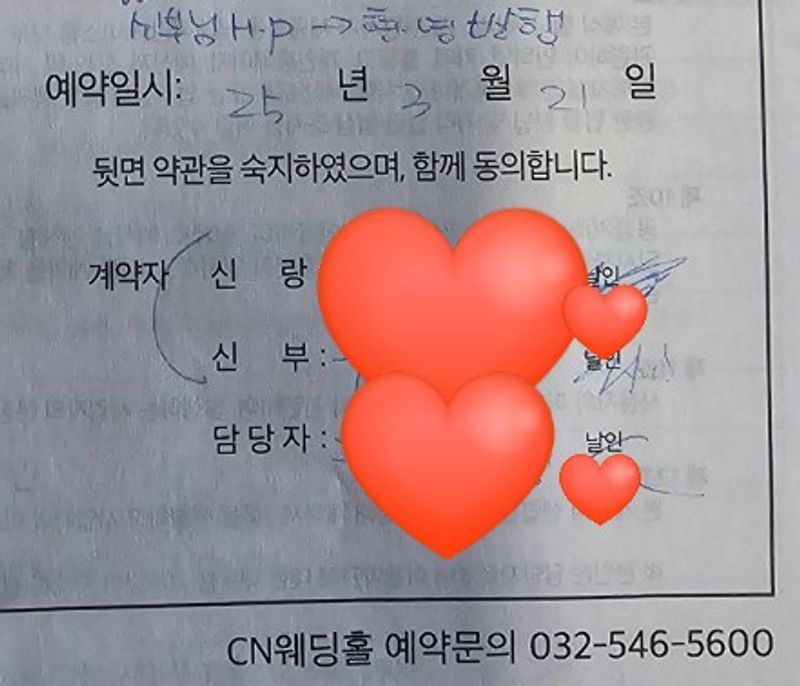 신부님 H.P → 현영 발행
예약일시: 25 년 3 월 21 일
뒷면 약관을 숙지하였으며, 함께 동의합니다.
계약자 신 랑 날인
신 부 : 날인
담 당 자 : 날인
CN웨딩홀 예약문의 032-546-5600